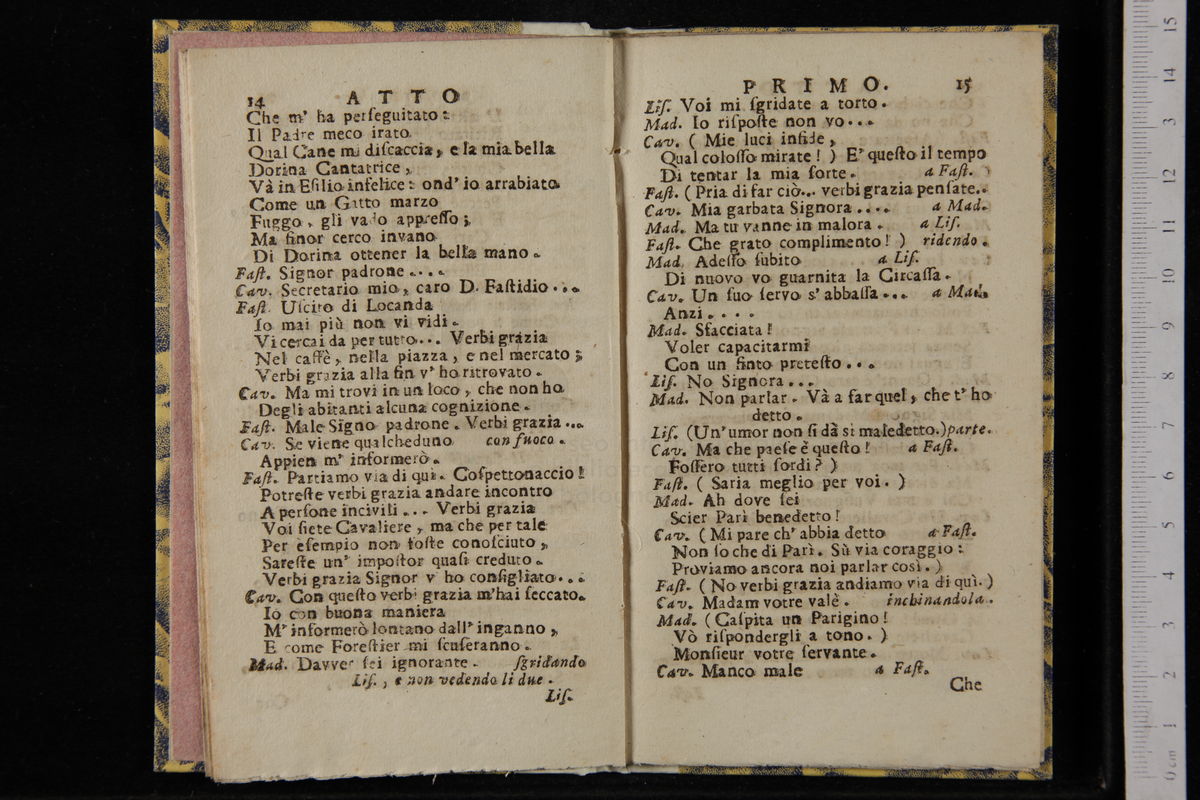 14 ATTO
Che m' ha perſeguitato:
Il Padre meco irato
Qual Cane mi diſcaccia, e la mia bella
Dorina Cantatrice,
Và in Eſilio infelice: ond' io arrabiato
Come un Gatto marzo
Fuggo, gli vado appreſſo;
Ma finor cerco invano
Di Dorina ottener la bella mano.
Faſt. Signor padrone....
Cav. Secretario mio, caro D. Faſtidio...
Faſt. Uſcito di Locanda
Io mai più non vi vidi.
Vi cercai da per tutto... Verbi grazia
Nel caffè, nella piazza, e nel mercato;
Verbi grazia alla fin v' ho ritrovato.
Cav. Ma mi trovi in un loco, che non ho
Degli abitanti alcuna cognizione.
Faſt. Male Signo padrone. Verbi grazia...
Cav. Se viene qualcheduno con fuoco.
Appien m' informerò.
Faſt. Partiamo via di quì. Coſpettonaccio!
Potreſte verbi grazia andare incontro
A perſone incivili... Verbi grazia
Voi ſiete Cavaliere, ma che per tale
Per eſempio non foſte conoſciuto,
Sareſte un' impoſtor quaſi creduto.
Verbi grazia Signor v' ho conſigliato...
Cav. Con queſto verbi grazia m'hai ſeccato.
Io con buona maniera
M' informerò lontano dall' inganno,
E come Foreſtier mi ſcuſeranno.
Mad. Davver ſei ignorante. ſgridando
Liſ., e non vedendo li due.
Liſ.
PRIMO. 15
Liſ. Voi mi ſgridate a torto.
Mad. Io riſpoſte non vo...
Cav. (Mie luci infide,
Qual coloſſo mirate!) E' queſto il tempo
Di tentar la mia ſorte. a Faſt.
Faſt. (Pria di far ciò... verbi grazia penſate..
Cav. Mia garbata Signora.... a Mad.
Mad. Ma tu vanne in malora. a Liſ.
Faſt. Che grato complimento!) ridendo.
Mad. Adeſſo ſubito a Liſ.
Di nuovo vo guarnita la Circaſſa.
Cav. Un ſuo ſervo s' abbaſſa... a Mad.
Anzi....
Mad. Sfacciata!
Voler capacitarmi
Con un finto preteſto...
Liſ. No Signora...
Mad. Non parlar. Và a far quel, che t' ho
detto.
Liſ. (Un' umor non ſi dà sì maledetto.) parte.
Cav. Ma che paeſe è queſto! a Faſt.
Foſſero tutti ſordi?)
Faſt. (Saria meglio per voi.)
Mad. Ah dove ſei
Scier Parì benedetto!
Cav. (Mi pare ch' abbia detto a Faſt.
Non ſo che di Parì. Sù via coraggio:
Proviamo ancora noi parlar così.)
Faſt. (No verbi grazia andiamo via di quì.)
Cav. Madam votre valè. inchinandola.
Mad. (Caſpita un Parigino!
Vò riſpondergli a tono.)
Monſieur votre ſervante.
Cav. Manco male a Faſt.
Che
0 cm 1 2 3 4 5 6 7 8 9 10 11 12 13 14 15